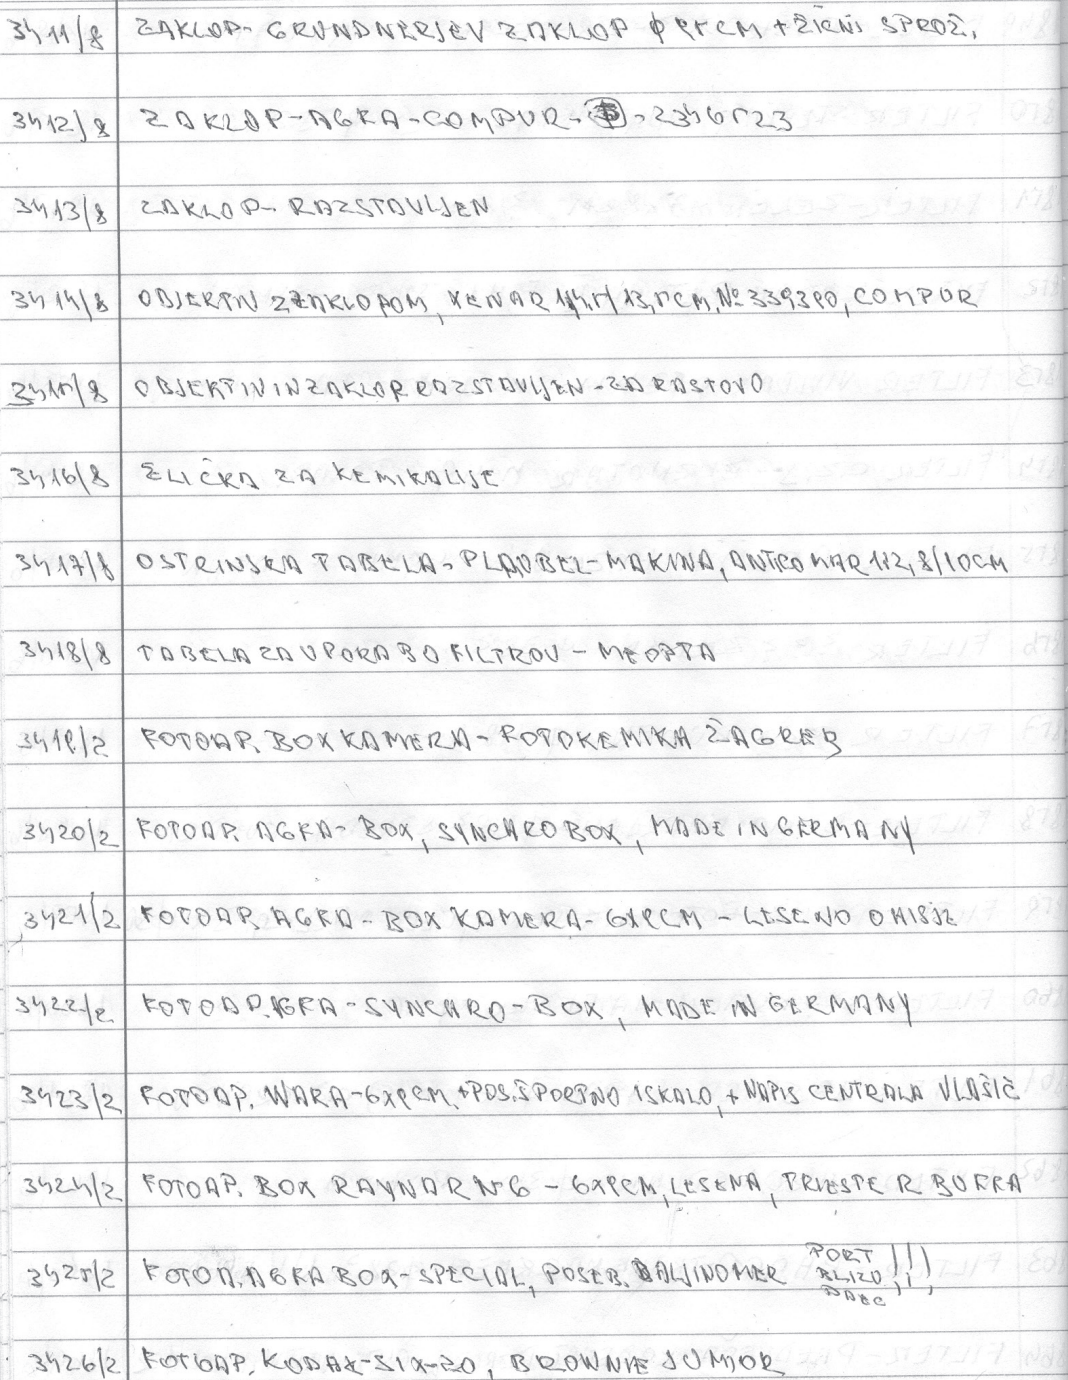 3411/8 ZAKLOP- GRUNDNERJEV ZAKLOP φ 95CM + ŽIČNI SPROŽ.
3412/8 ZAKLOP-AGFA-COMPUR- - 2346523
3413/8 ZAKLOP- RAZSTAVLJEN
3414/8 OBJEKTIV Z ZAKLOPOM, XENAR 1:4,5/13,5CM, № 339390, COMPUR
3415/8 OBJEKTIV IN ZAKLOP RAZSTAVLJEN - ZA RASTOVO
3416/8 ŽLIČKA ZA KEMIKALIJE
3417/8 OSTRINSKA TABELA- PLAUBEL-MAKINA, ANTICOMAR 1:2,8/10CM
3418/8 TABELA ZA UPORABO FILTROV - MEOPTA
3419/2 FOTOAP. BOX KAMERA- FOTOKEMIKA ZAGREB
3420/2 FOTOAP. AGFA- BOX, SYNCHROBOX, MADE IN GERMANY
3421/2 FOTOAP. AGFA - BOX KAMERA- 6X9CM - LESENO OHIŠJE
3422/2 FOTOAP. AGFA -SYNCHRO-BOX, MADE IN GERMANY
3423/2 FOTOAP. WARA-6X9CM, +POS. ŠPORTNO ISKALO, + NAPIS CENTRALA VLAŠIČ
3424/2 FOTOAP. BOX RAYNAR Nº6 - 6X9CM, LESENA, TRIESTE R BUFFA
3425/2 FOTOA. AGFA BOX-SPECIAL, POSEB. DALJINOMER PORT !!!
BLIZU
DALEC
3426/2 FOTOAP. KODAK-SIX-20, BROWNIE JUNIOR